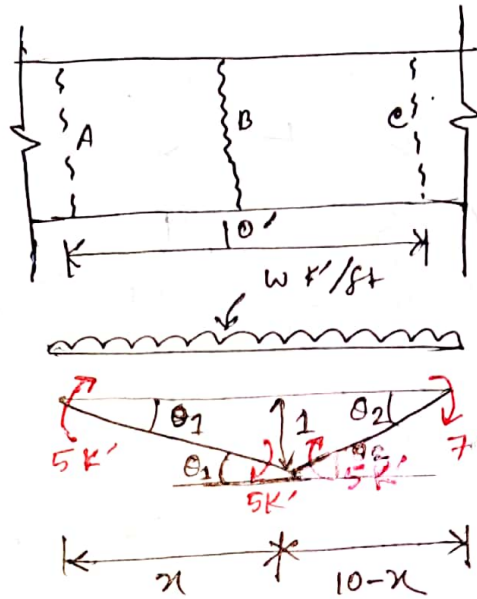 A B C
10'
w k'/ft
θ1 1 θ2 7
5k' θ1 θ2 5k'
5k'
x 10-x